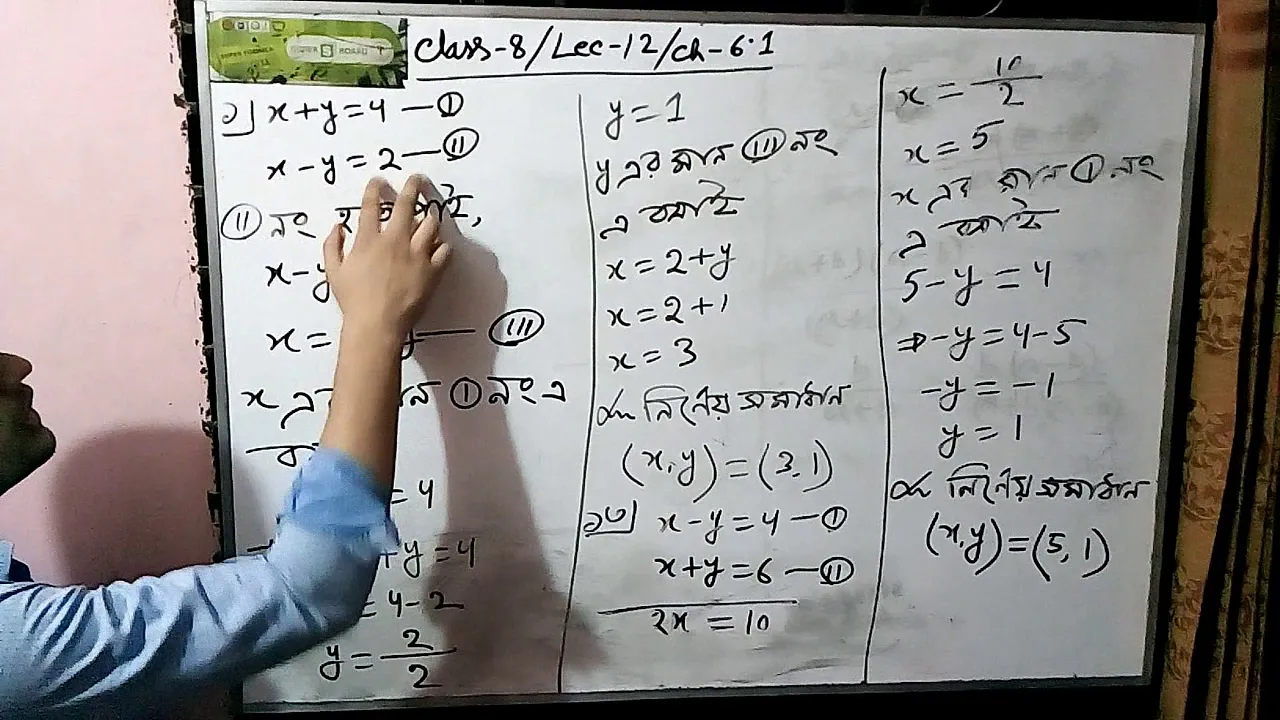 Class-8/Lec-12/ch-6.1
SUPER BOARD
১) x+y=4 —(I)
x-y=2 —(II)
(II) নং পাই,
x-y
x= — (III)
x এর (I) নং এ
= 4
+y=4
= 4-2
y = 2/2
y = 1
y এর মান (III) নং
এ বসাই
x = 2+y
x = 2+1
x = 3
∴ নির্ণেয় সমাধান
(x,y) = (3,1)
১৩) x-y=4 —(I)
x+y=6 —(II)
2x = 10
x = 10/2
x = 5
x এর মান (I) নং
এ বসাই
5-y = 4
⇒ -y = 4-5
-y = -1
y = 1
∴ নির্ণেয় সমাধান
(x,y) = (5,1)